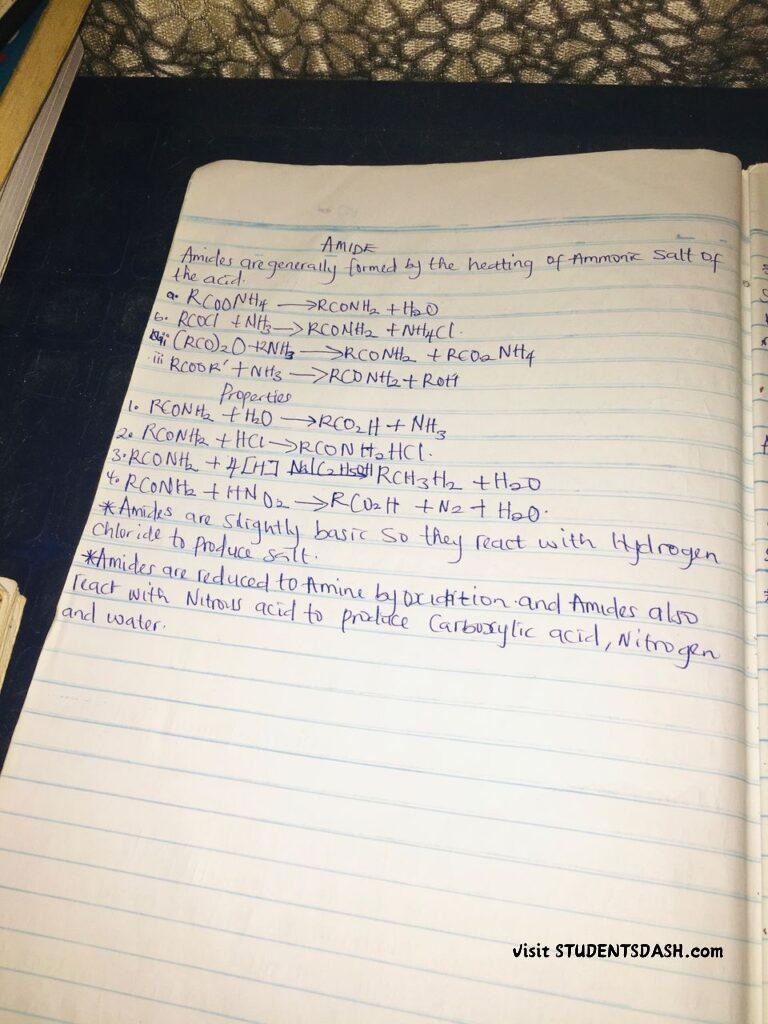 AMIDE
Amides are generally formed by the heatting of Ammonic Salt of
the acid.
a. RCOONH4 → RCONH2 + H2O
b. RCOCl + NH3 → RCONH2 + NH4Cl.
ii (RCO)2O + RNH3 → RCONH2 + RCO2NH4
iii RCOOR' + NH3 → RCONH2 + ROH
Properties
1. RCONH2 + H2O → RCO2H + NH3
2. RCONH2 + HCl → RCONH2HCl.
3. RCONH2 + 4[H] Na/C2H5OH RCH3H2 + H2O
4. RCONH2 + HNO2 → RCO2H + N2 + H2O.
*Amides are slightly basic so they react with Hydrogen
Chloride to produce salt.
*Amides are reduced to Amine by and Amides also
react with Nitrous acid to produce Carboxylic acid, Nitrogen
and water.
visit STUDENTSDASH.com